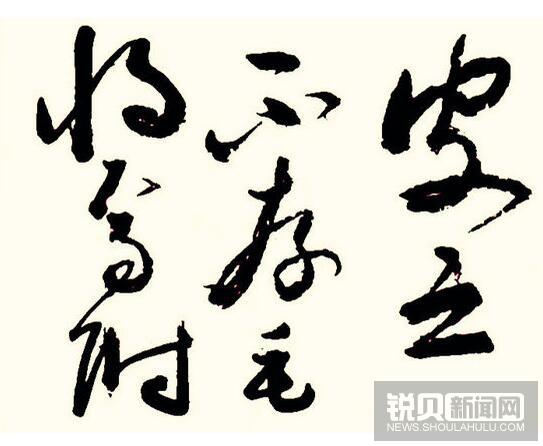 皮之
不存毛
将焉附
锐贝新闻网
NEWS.SHOULAHULU.COM